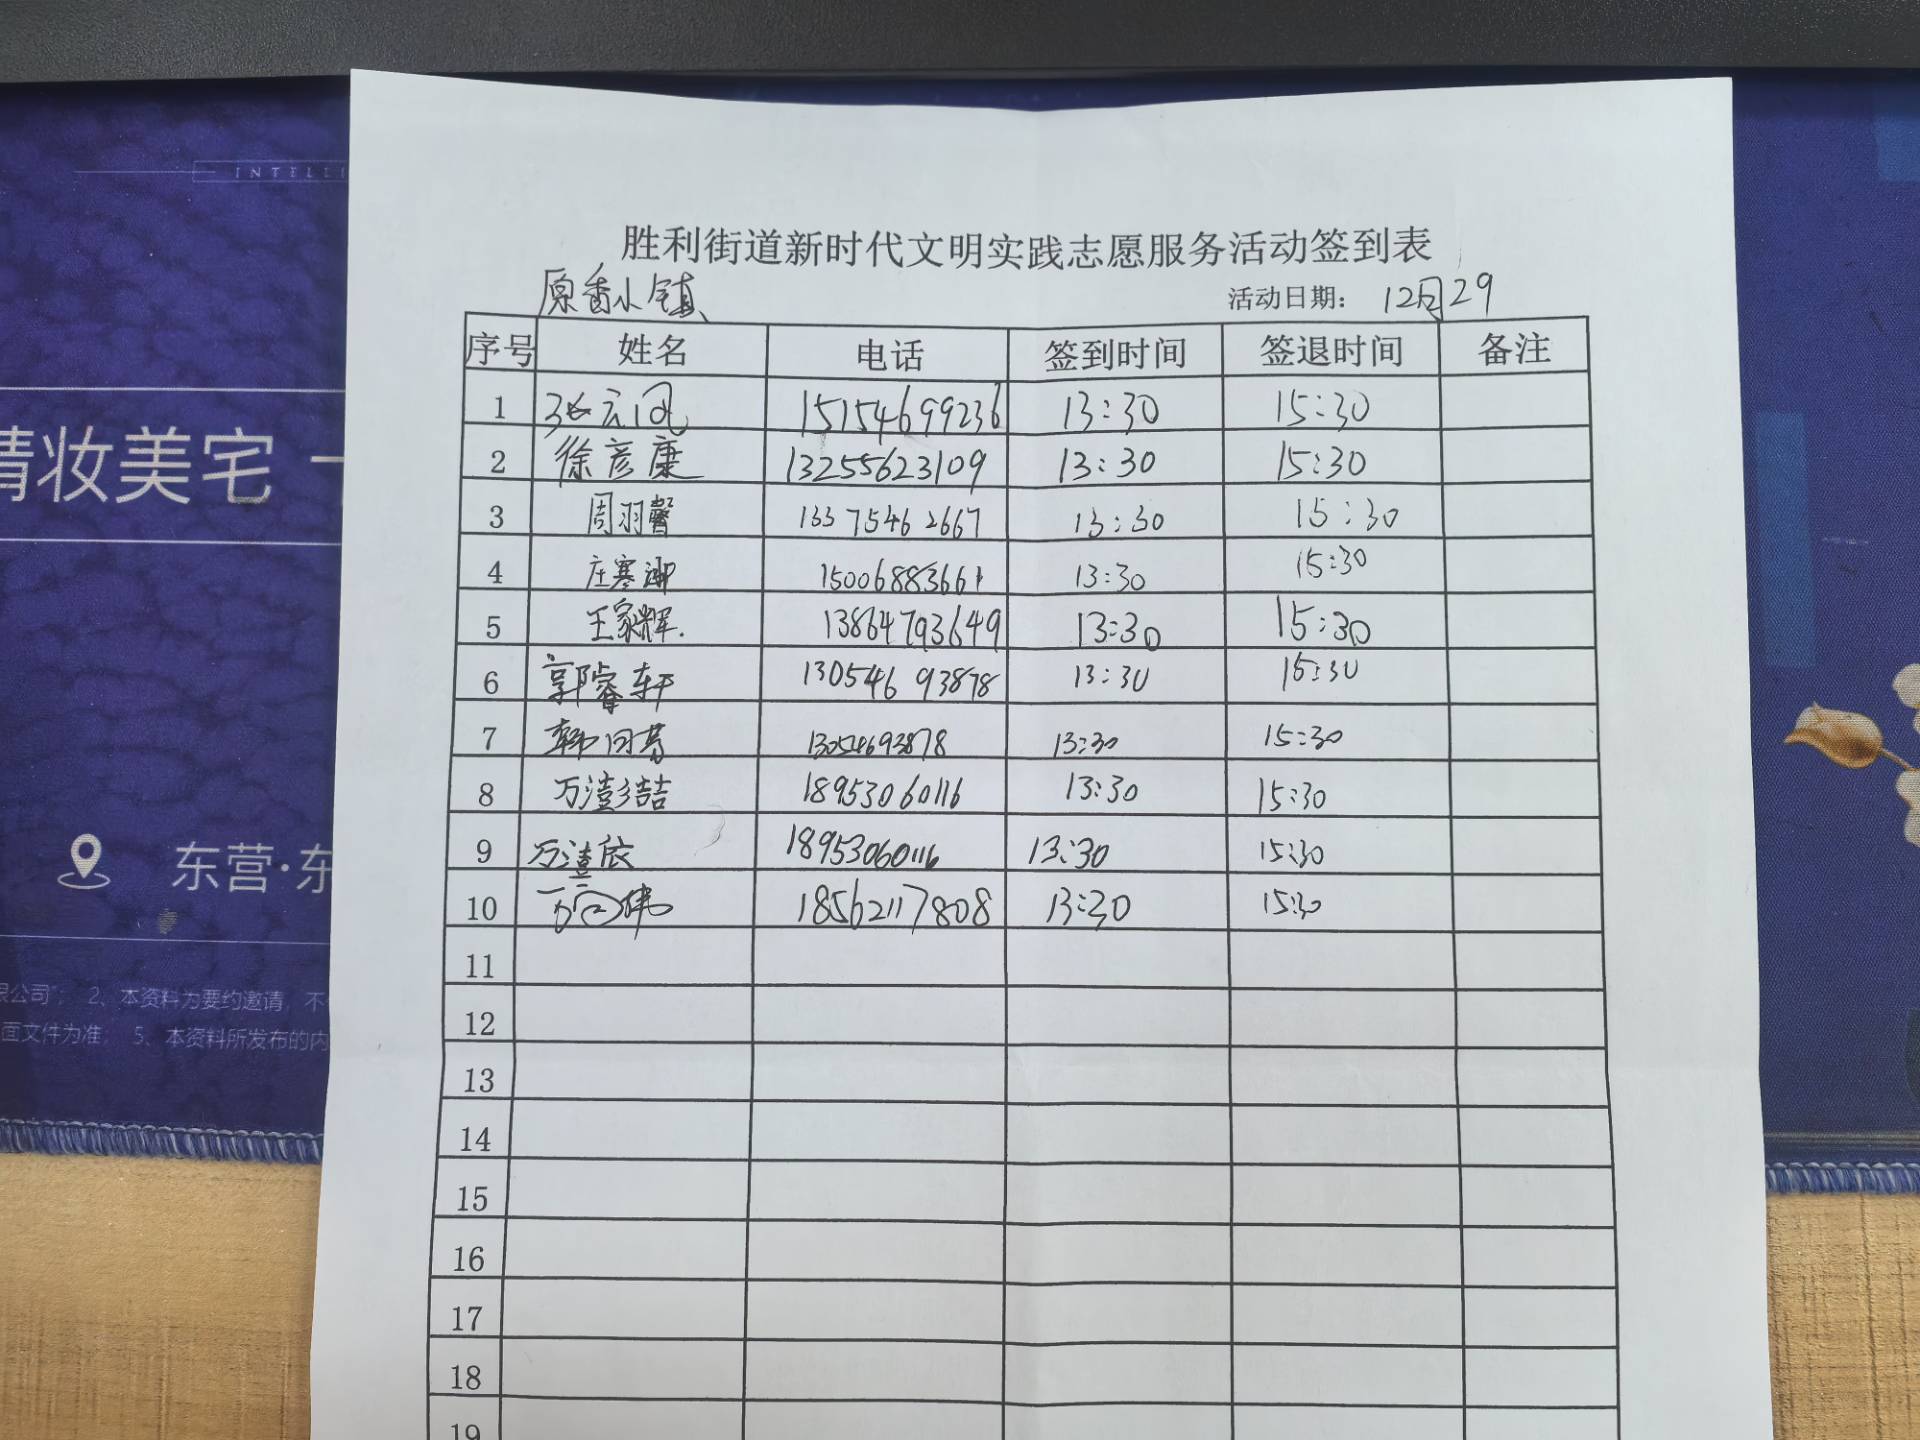 INTELLI
精妆美宅
东营·东
限公司”； 2、本资料为要约邀请，不
面文件为准； 5、本资料所发布的内
胜利街道新时代文明实践志愿服务活动签到表
原香小镇 活动日期： 12月29
序号 姓名 电话 签到时间 签退时间 备注
1 张元凤 15154699236 13:30 15:30
2 徐彦康 13255623109 13:30 15:30
3 周羽馨 13375462667 13:30 15:30
4 庄寒 15006883661 13:30 15:30
5 王家辉. 13864793649 13:30 15:30
6 郭睿轩 13054693878 13:30 15:30
7 韩 13054693878 13:30 15:30
8 万澎喆 18953060116 13:30 15:30
9 万 18953060116 13:30 15:30
10 万 18562117808 13:30 15:30
11
12
13
14
15
16
17
18
19